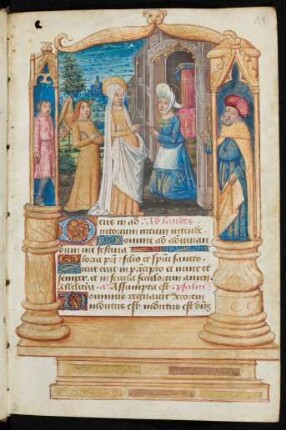 Deus in ad Ad laudes
iutorium meum intende
Domine ad adiuuan
dum me festina
Gloria pri filio et spui sancto
Sicut erat in principio et nunc et
semper et in secula seculorum amen
Alleluia a Assumpta est psalm
Dominus regnauit decorem
indutus est indutus est dns